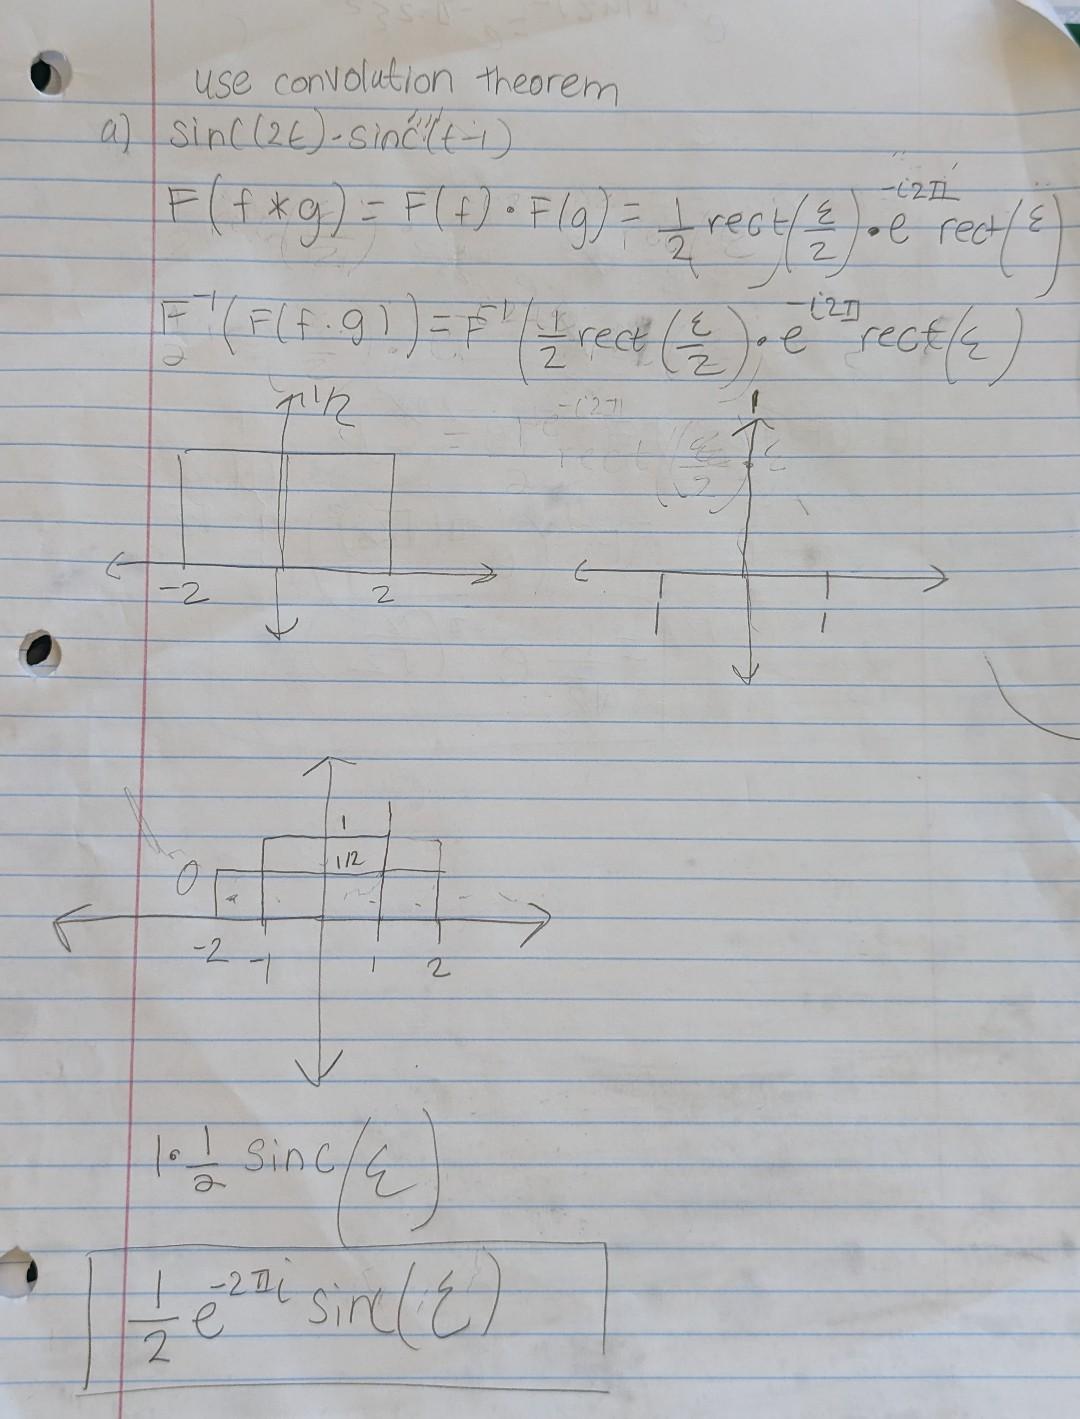 use convolution theorem
a) sinc(2t)-sinc(t-1)
F(f*g) = F(f)·F(g) = 1/2 rect(ξ/2)·e^-i2π rect(ξ)
F^-1(F(f·g)) = F^-1(1/2 rect(ξ/2)·e^-i2π rect(ξ)
1/2
1
-2 2
1 1
1
0 1/2
-2 -1 1 2
1·1/2 sinc(ξ)
1/2 e^-2πi sinc(ξ)